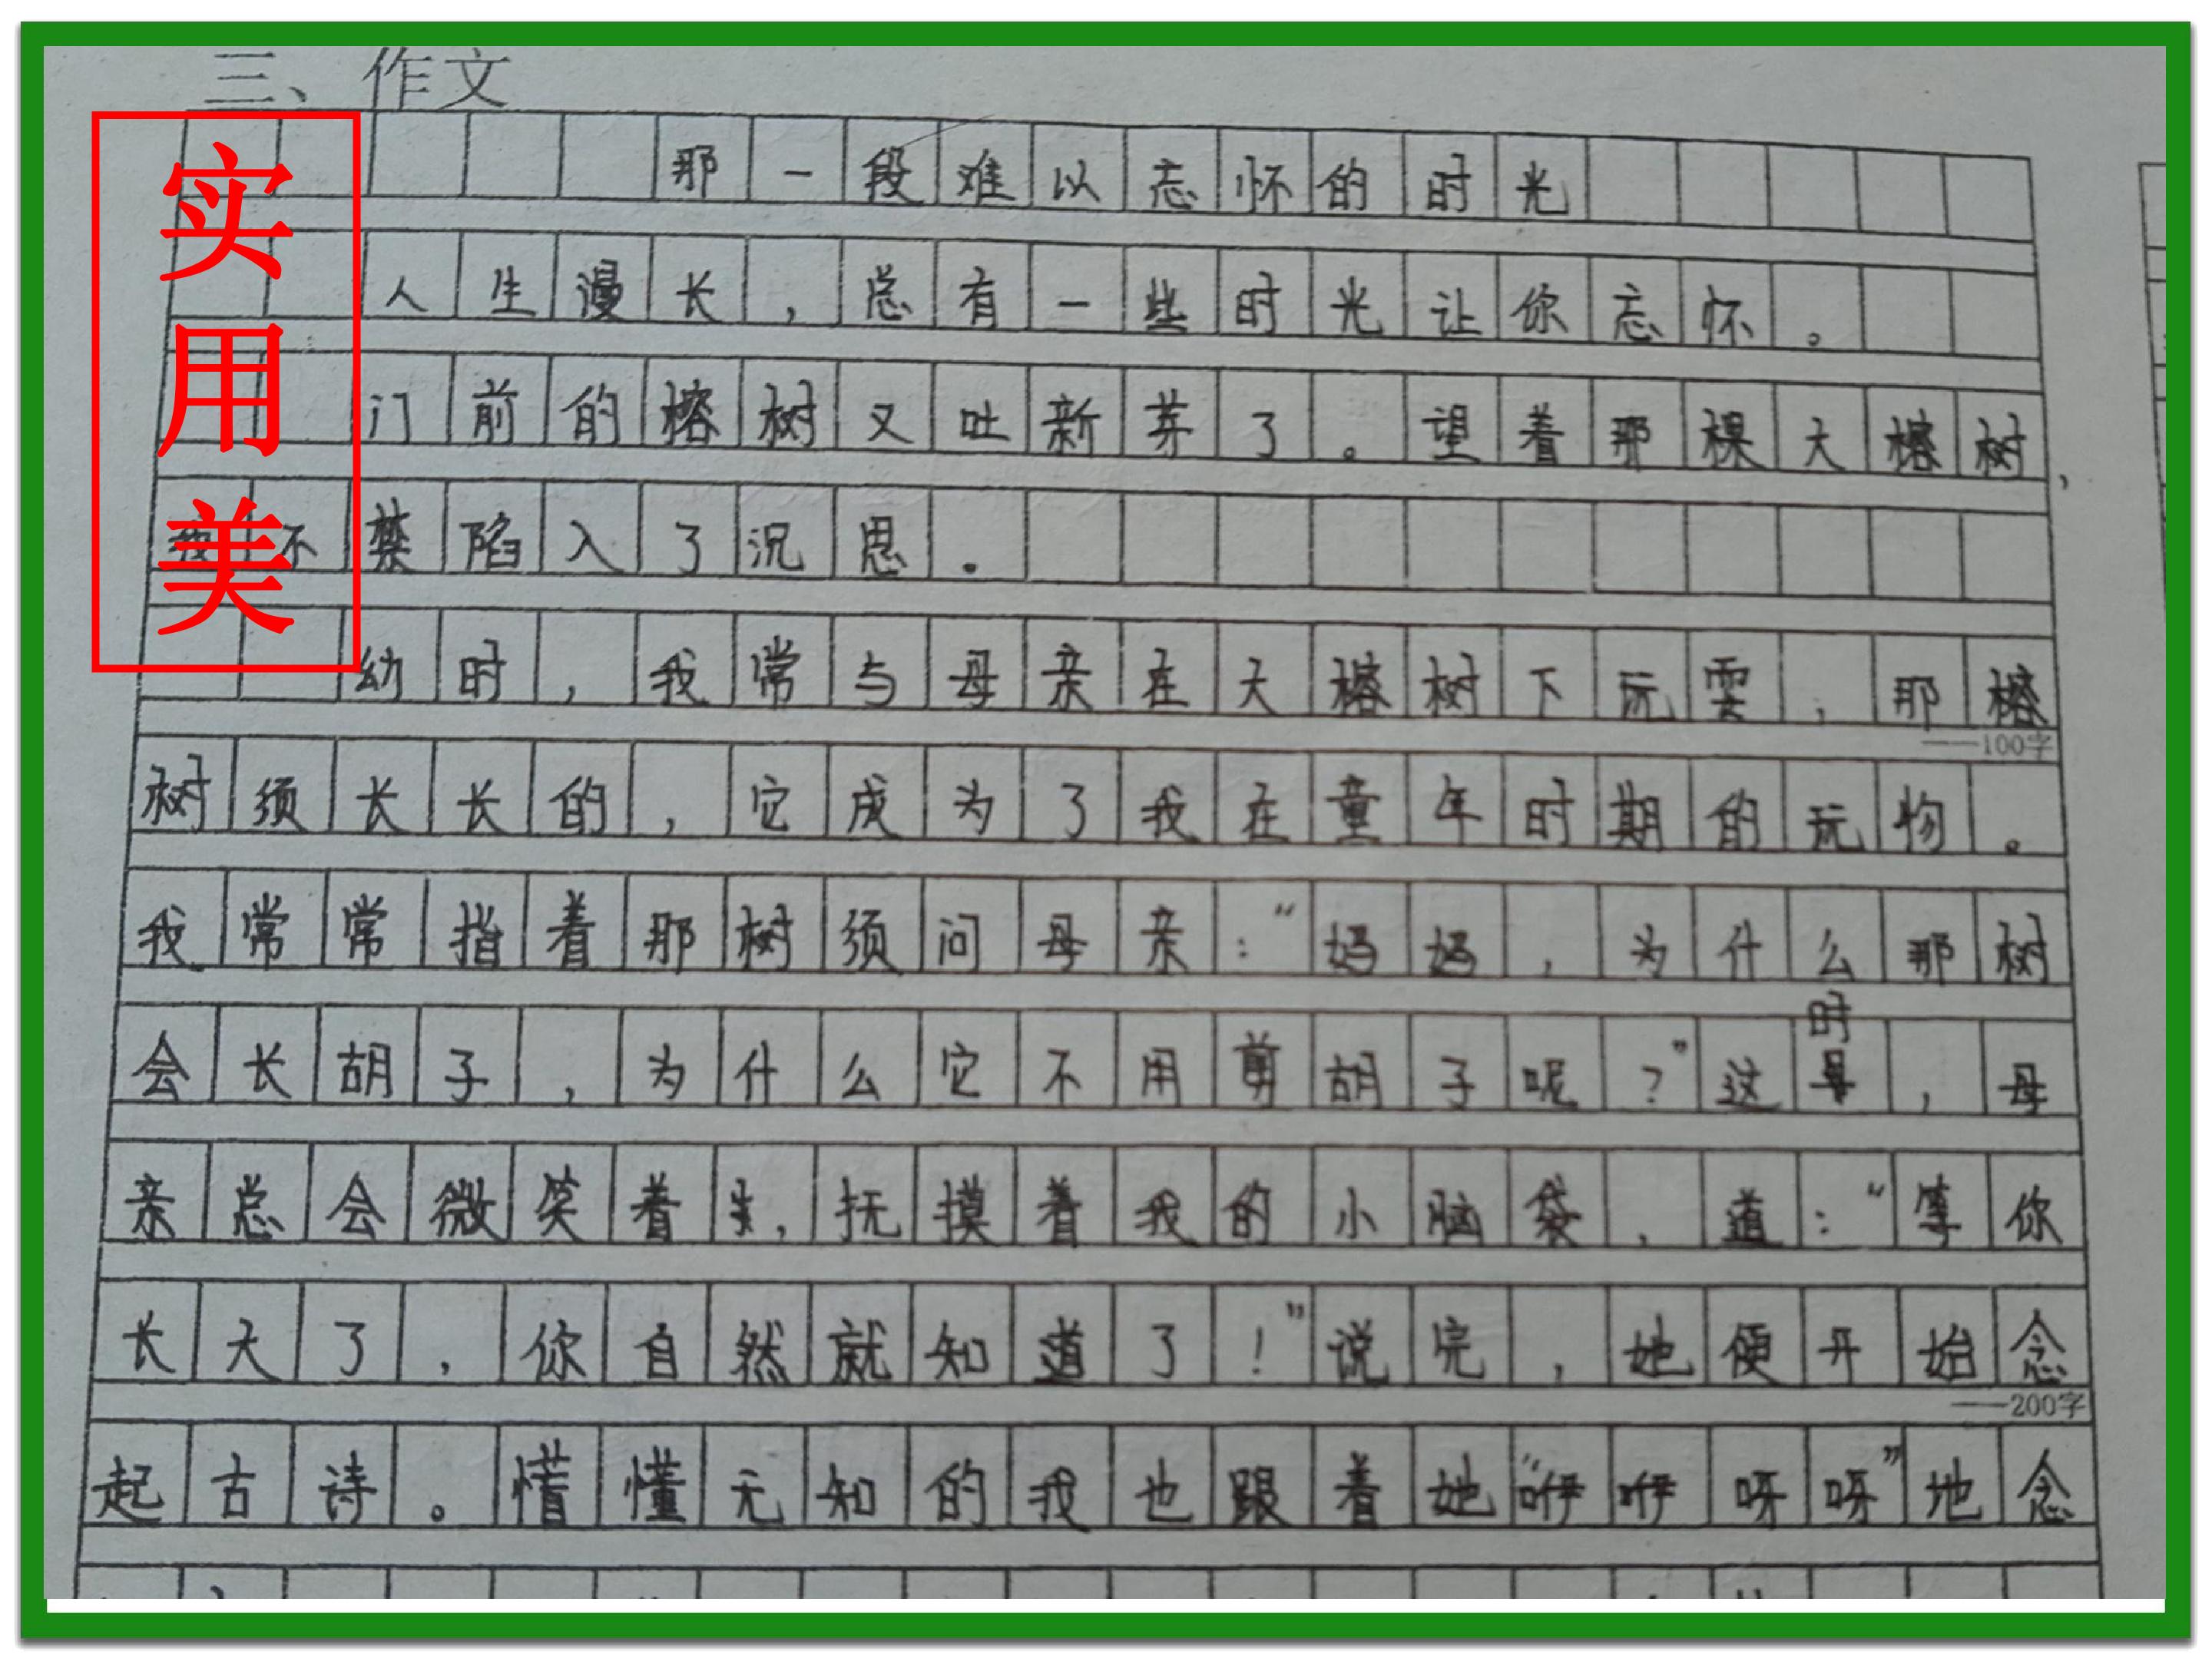 三、作文
实用美
那一段难以忘怀的时光
人生漫长，总有一些时光让你忘怀。
门前的榕树又吐新芽了。望着那棵大榕树，
我不禁陷入了沉思。
幼时，我常与母亲在大榕树下玩耍，那榕
——100字
树须长长的，它成为了我在童年时期的玩物。
我常常指着那树须问母亲：“妈妈，为什么那树
会长胡子，为什么它不用剪胡子呢？”这时，母
亲总会微笑着，抚摸着我的小脑袋，道：“等你
长大了，你自然就知道了！”说完，她便开始念
——200字
起古诗。懵懂无知的我也跟着她“咿咿呀呀”地念